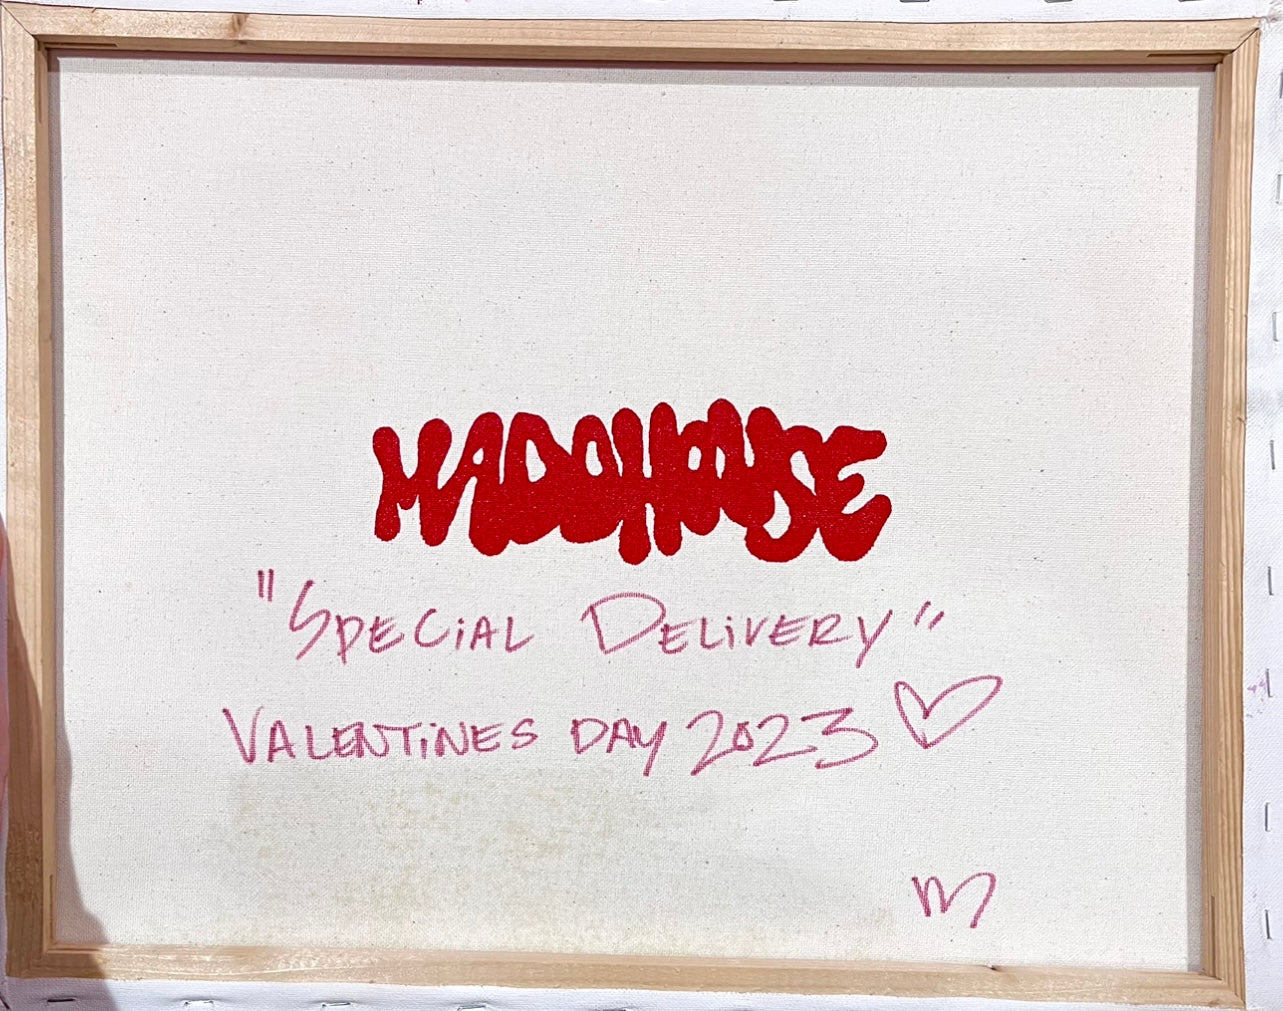 MADOHOUSE
"SPECiAL DELiVERY"
VALENTiNES DAY 2023 ♡
M